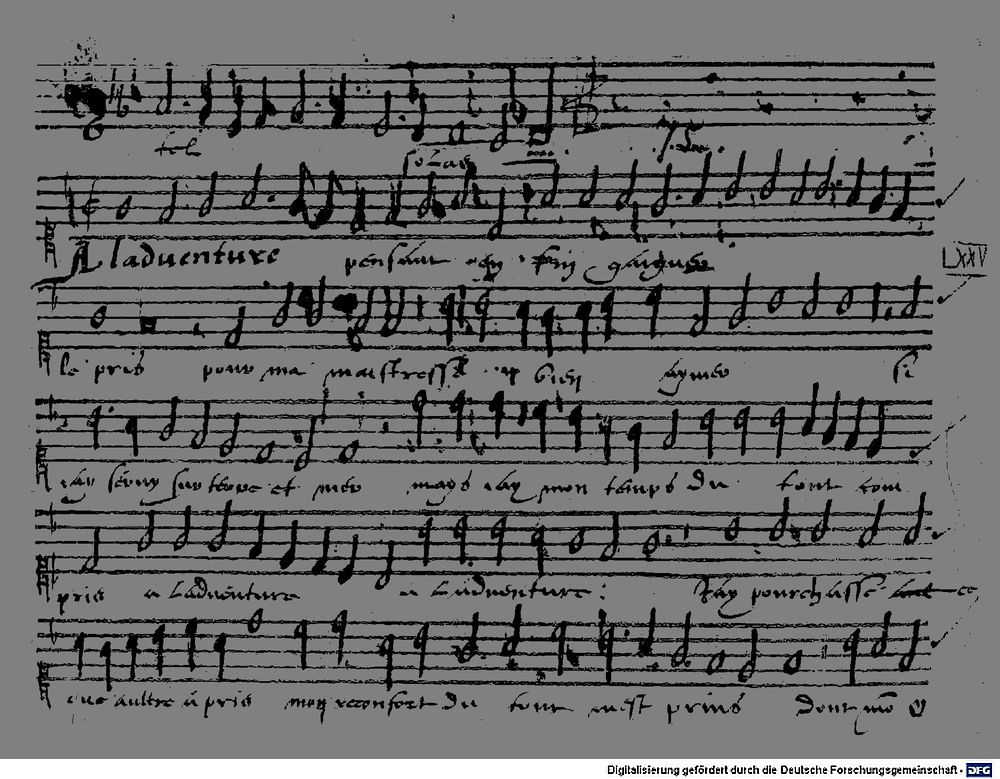 Solas
A ladventure pensant en fin gaigner
LXXV
le pris pour ma maistresse bien aymer si
iay servy sur terre et mer mays iay mon temps du tout com
pris a Ladventure a Ladventure : Jay pourchasse ce
que aultre a pris mon reconfort du tout mest prins Dont mo
Digitalisierung gefördert durch die Deutsche Forschungsgemeinschaft - DFG